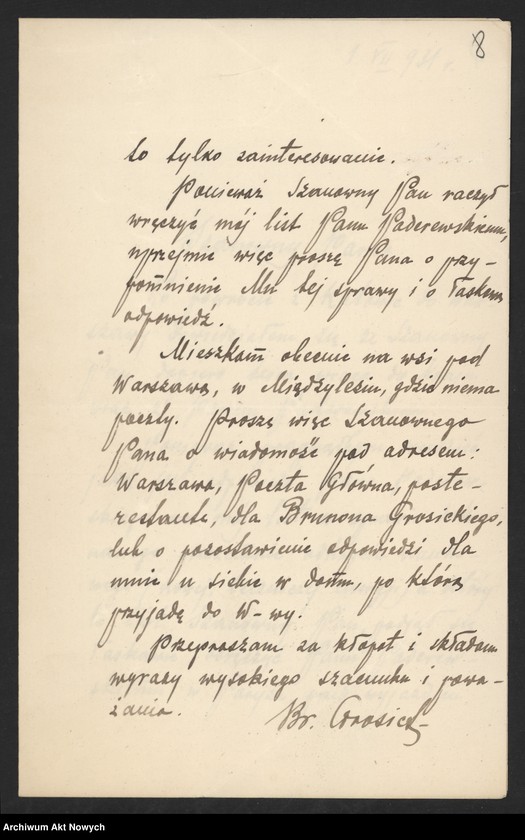 8
to tylko zainteresowanie.
Ponieważ Szanowny Pan raczył
wręczyć mój list Panu Paderewskiemu,
uprzejmie więc proszę Pana o przy-
pomnienie Mu tej sprawy i o łaskawą
odpowiedź.
Mieszkam obecnie na wsi pod
Warszawą, w Międzylesiu, gdzie niema
poczty. Proszę więc Szanownego
Pana o wiadomość pod adresem:
Warszawa, Poczta Główna, poste-
restante, dla Brunona Grosickiego,
lub o pozostawienie odpowiedzi dla
mnie u siebie w domu, po którą
przyjadę do W-wy.
Przepraszam za kłopot i składam
wyrazy wysokiego szacunku i powa-
żania.
Br. Grosicki
Archiwum Akt Nowych